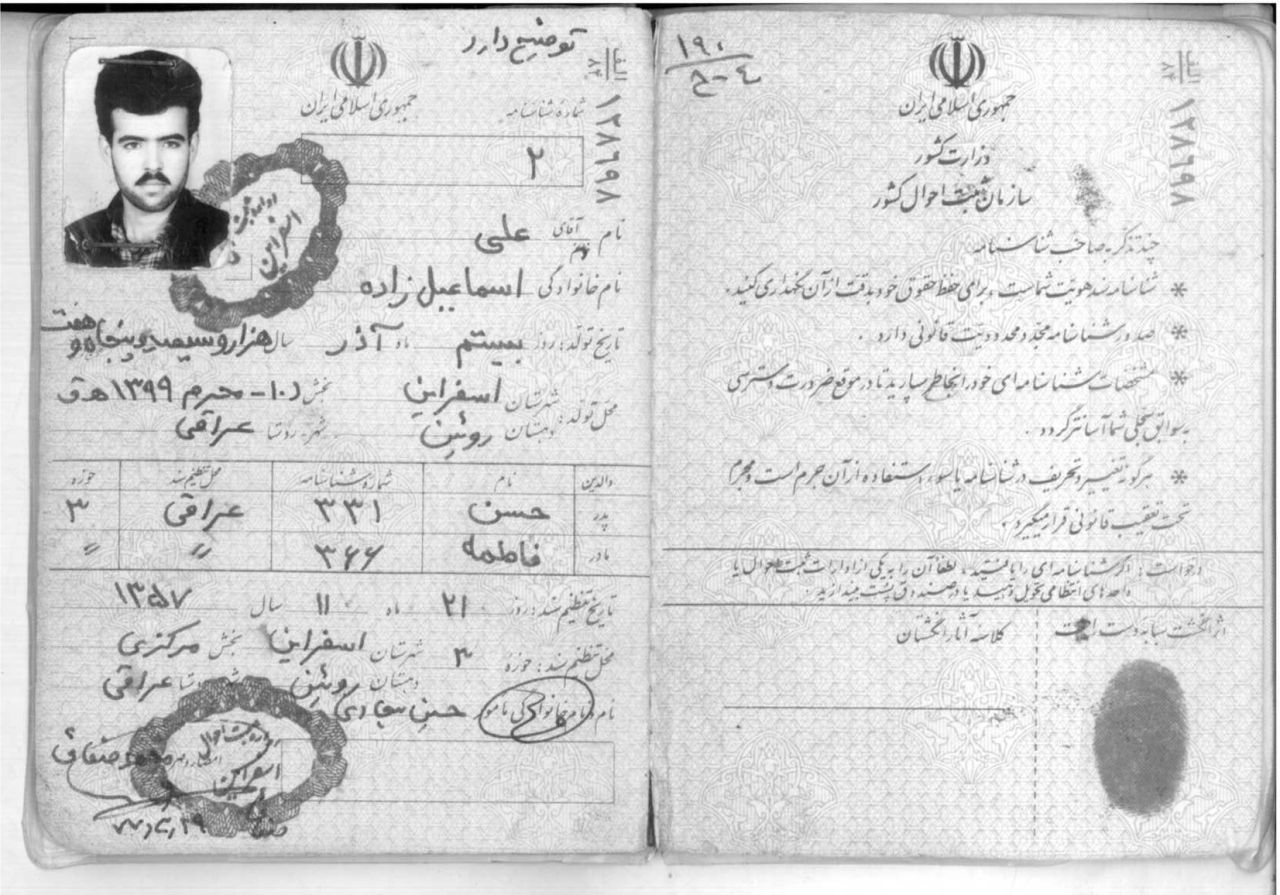 ۱۹۰
۴-ح
الف
۸۴
۱۳۸۶۹۸
جمهوری اسلامی ایران
وزارت کشور
سازمان ثبت احوال کشور
چند تذکر به صاحب شناسنامه
* شناسنامه سند هویت شماست، برای حفظ حقوق خود بدقت از آن نگهداری کنید.
* صدور شناسنامه مجدد محدودیت قانونی دارد.
* مشخصات شناسنامه‌ای خود را بخاطر بسپارید تا در موقع ضرورت دسترسی
به سوابق سجلی شما آسانتر گردد.
* هرگونه تغییر و تحریف در شناسنامه یا سوء استفاده از آن جرم است و مجرم
تحت تعقیب قانونی قرار میگیرد.
درخواست: اگر شناسنامه‌ای را یافتید، لطفاً آن را به یکی از ادارات ثبت احوال یا
واحدهای انتظامی تحویل دهید یا در صندوق پست بیندازید.
اثر انگشت سبابه دست
کلاسه آثار انگشتان
توضیح دارد
الف
۸۴
۱۳۸۶۹۸
جمهوری اسلامی ایران
شماره شناسنامه
۲
نام آقای علی
نام خانوادگی اسماعیل زاده
تاریخ تولد: روز بیستم ماه آذر سال هزار و سیصد و پنجاه و هفت
محل تولد: شهرستان اسفراین بخش ۱۰- محرم ۱۳۹۹ هـ ق
دهستان روئین شهر-روستا عراقی
والدین نام شماره شناسنامه محل تنظیم سند حوزه
پدر حسن ۳۳۱ عراقی ۳
مادر فاطمه ۳۶۶〃 〃
تاریخ تنظیم سند: روز ۲۱ ماه ۱۱ سال ۱۳۵۷
محل تنظیم سند: حوزه ۳ شهرستان اسفراین بخش مرکزی
دهستان روئین عراقی
نام و نام خانوادگی مامور حسن
اداره ثبت احوال
اسفراین